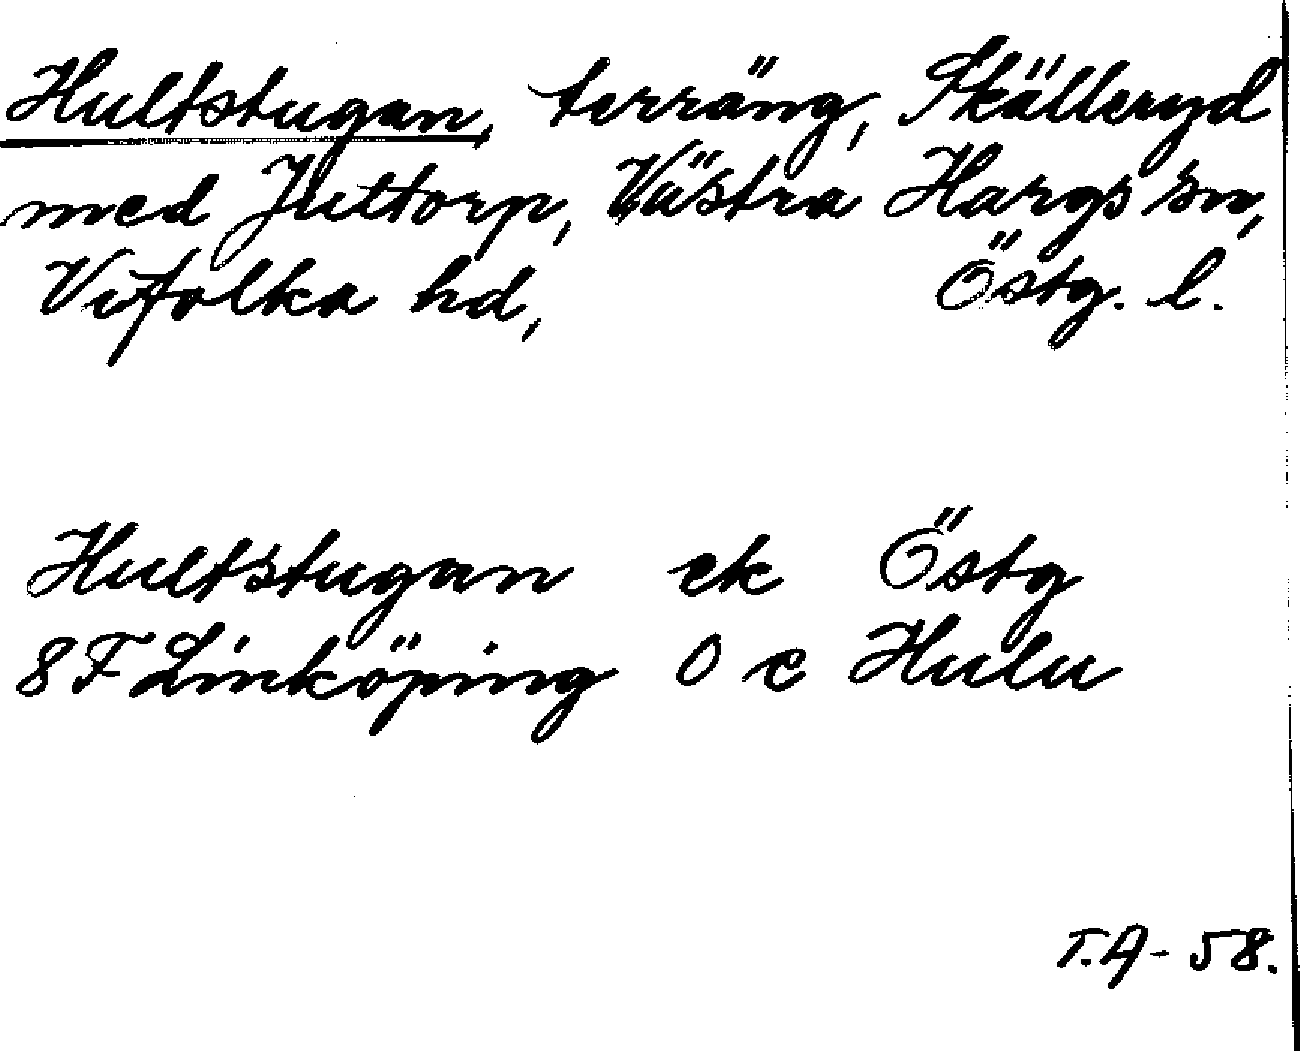 Hultstugan, terräng, Skälleryd
med Juttorp, Västra Hargs sn,
Vifolka hd, Östg. l.
Hultstugan ek Östg
8F Linköping O e Hulu
T.A-58.